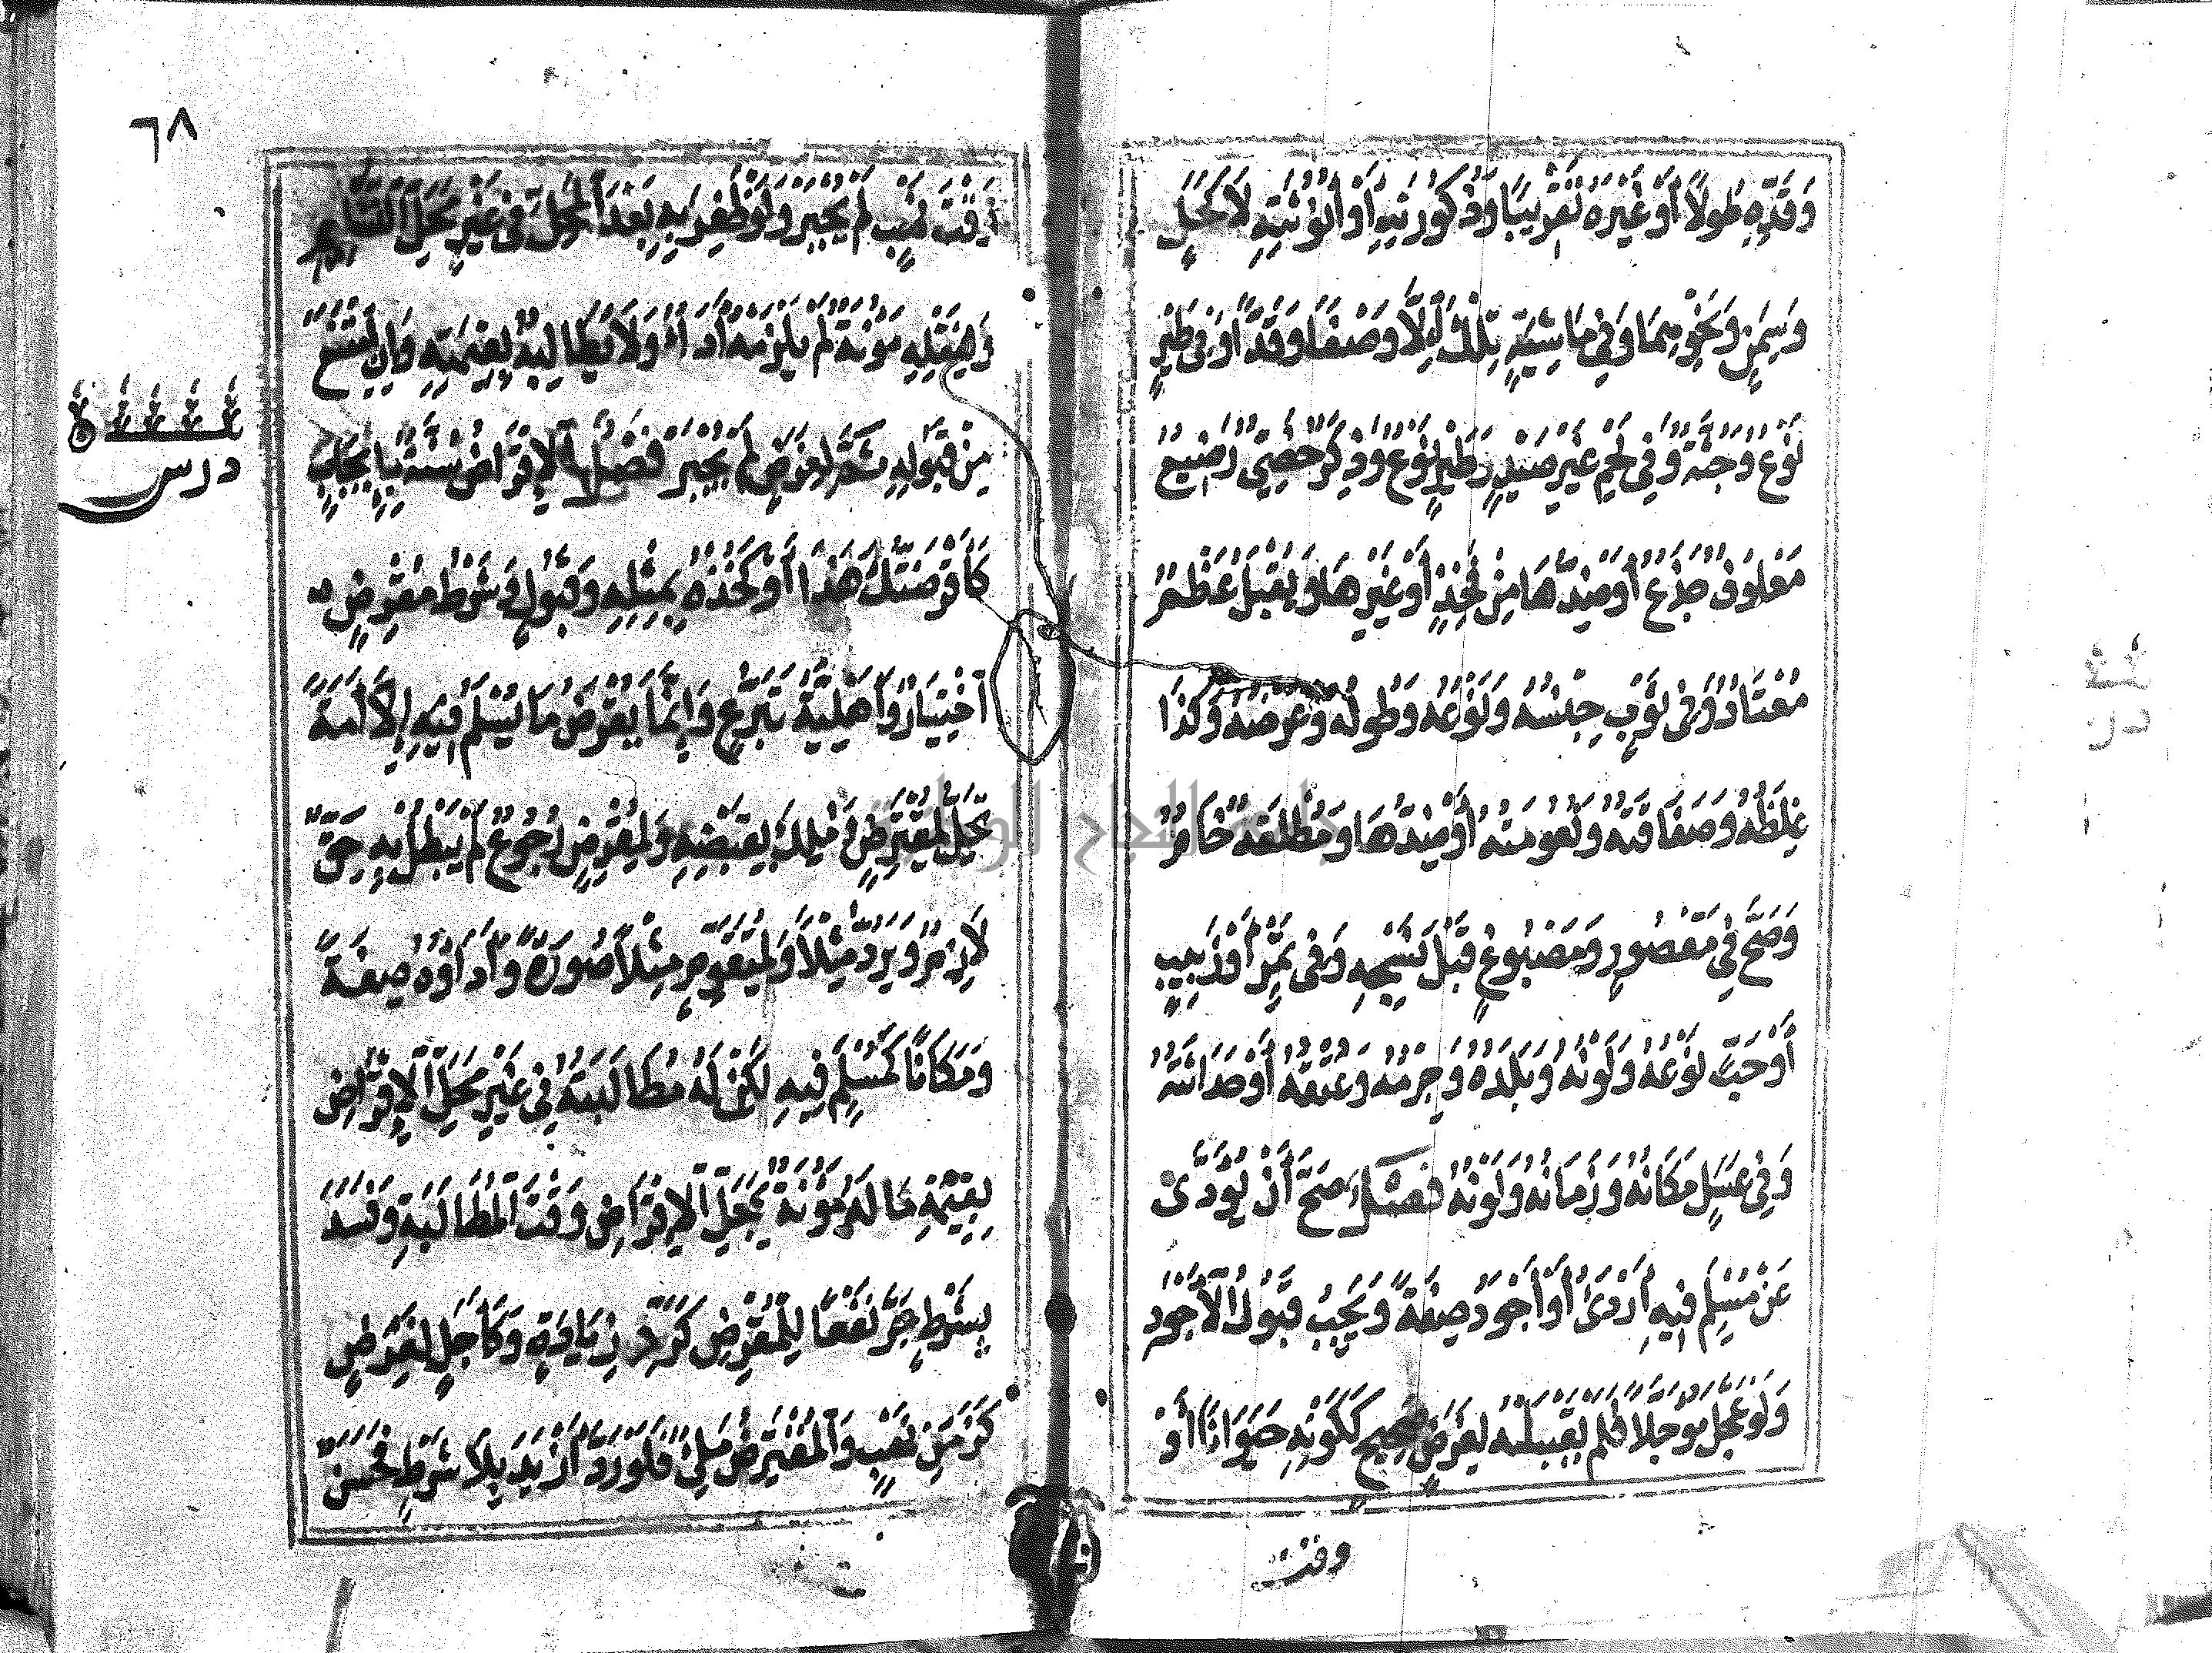 وَقَدِّهِ طُولًا أَوْ غَيْرَهُ تَقْرِيبًا وَذُكُورَتِهِ أَوْ أُنُوثَتِهِ لَا كَحَلٍ
وَسِمَنٍ وَنَحْوِهِمَا وَفِي مَاشِيَةٍ تِلْكَ إِلَّا وَصْفًا وَقَدًّا وَفِي طَيْرٍ
نَوْعٌ وَجُثَّةٌ وَفِي لَحْمٍ غَيْرِ صَيْدٍ وَطَيْرٍ نَوْعٌ وَذِكْرُ خَصِيٍّ رَضِيعٍ
مَعْلُوفٍ جَذَعٍ أَوْ ضِدِّهَا مِنْ فَخِذٍ أَوْ غَيْرِهَا وَيُقْبَلُ عَظْمٌ
مُعْتَادٌ وَفِي ثَوْبٍ جِنْسُهُ وَنَوْعُهُ وَطُولُهُ وَعَرْضُهُ وَكَذَا
غِلَظُهُ وَصَفَاقَتُهُ وَنُعُومَتُهُ أَوْ ضِدُّهَا وَمُطْلَقُهُ خَامٌ
وَصَحَّ فِي مَقْصُورٍ وَمَصْبُوغٍ قَبْلَ نَسْجِهِ وَفِي تَمْرٍ أَوْ زَبِيبٍ
أَوْ حَبٍّ نَوْعُهُ وَلَوْنُهُ وَبَلَدُهُ وَجِرْمُهُ وَعِتْقُهُ أَوْ حَدَاثَتُهُ
وَفِي عَسَلٍ مَكَانُهُ وَزَمَانُهُ وَلَوْنُهُ فَصْلٌ صَحَّ أَنْ يُؤَدَّى
عَنْ مُسْلَمٍ فِيهِ أَرْدَى أَوْ أَجْوَدُ صِفَةً وَيَجِبُ قَبُولُ الْأَجْوَدِ
وَلَوْ عَجَّلَ مُؤَجَّلًا فَلَمْ يَقْبَلْهُ لِغَرَضٍ صَحِيحٍ كَكَوْنِهِ حَيَوَانًا أَوْ
وقت
٦٨
وَقْتَ نَهْبٍ لَمْ يُجْبَرْ وَلَوْ ظَفِرَ بِهِ بَعْدَ الْمَحِلِّ فِي غَيْرِ مَحَلِّ التَّسْلِيمِ
وَلِنَقْلِهِ مُؤْنَةٌ لَمْ يَلْزَمْهُ أَدَاءٌ وَلَا يُطَالِبُهُ بِقِيمَتِهِ وَإِنِ امْتَنَعَ
درس
مِنْ قَبُولِهِ ثَمَّ لِغَرَضٍ لَمْ يُجْبَرْ فَصْلٌ الْإِقْرَاضُ سُنَّةٌ بِإِيجَابٍ
كَأَقْرَضْتُكَ هَذَا أَوْ خُذْهُ بِمِثْلِهِ وَقَبُولٍ وَشَرْطُ مُقْرِضٍ
اخْتِيَارٌ وَأَهْلِيَّةُ تَبَرُّعٍ وَإِنَّمَا يُقْرَضُ مَا يُسْلَمُ فِيهِ إِلَّا أَمَةً
تَحِلُّ لِمُقْتَرِضٍ وَمُلِكَ بِقَبْضِهِ وَلِمُقْرِضٍ رُجُوعٌ لَمْ يَبْطُلْ بِهِ حَقٌّ
لَازِمٌ وَيَرُدُّ مِثْلًا وَلِمُتَقَوِّمٍ مِثْلًا صُورَةً وَأَدَاؤُهُ صِفَةً
وَمَكَانًا كَمُسْلَمٍ فِيهِ لَكِنْ لَهُ مُطَالَبَتُهُ فِي غَيْرِ مَحَلِّ الْإِقْرَاضِ
بِقِيمَةِ مَا لَهُ مُؤْنَةٌ بِمَحَلِّ الْإِقْرَاضِ وَقْتَ الْمُطَالَبَةِ وَفَسَدَ
بِشَرْطٍ جَرَّ نَفْعًا لِلْمُقْرِضِ كَرَدِّ زِيَادَةٍ وَكَأَجَلٍ لِغَرَضٍ
كَزَمَنِ نَهْبٍ وَالْمُقْتَرِضُ مَلِيٌّ فَلَوْ رَدَّ أَزْيَدَ بِلَا شَرْطٍ فَحَسَنٌ